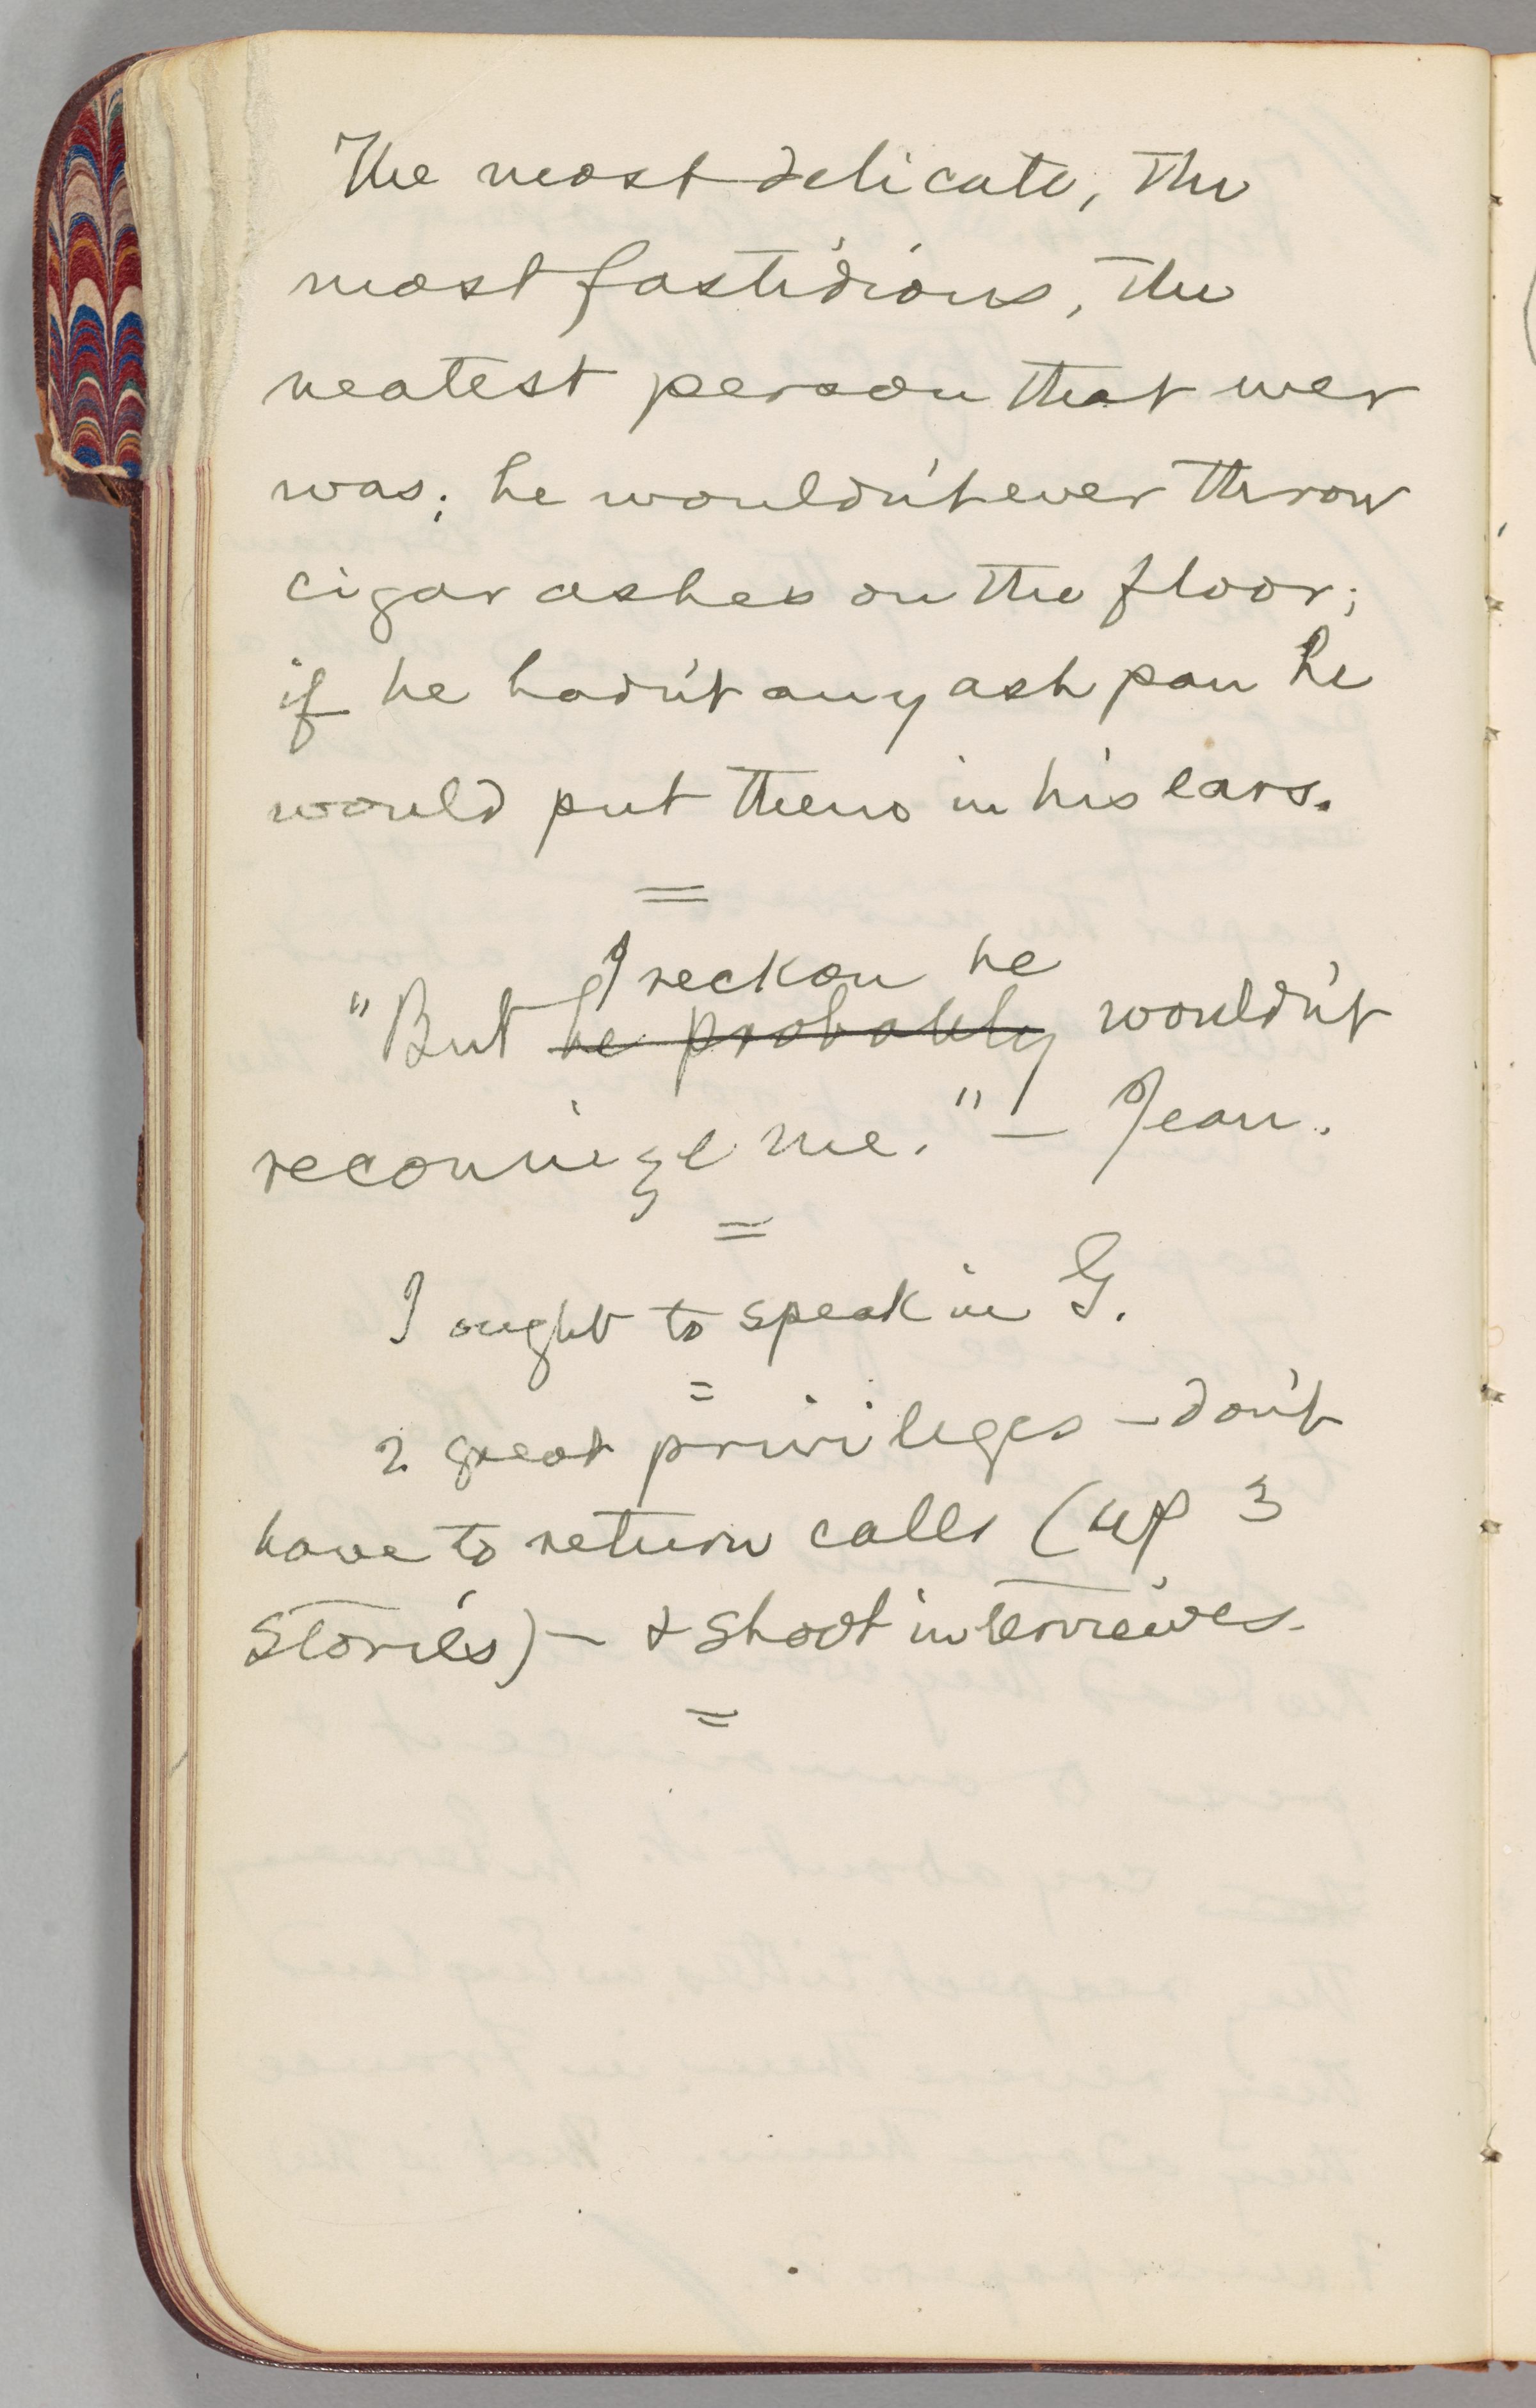 The most delicate, the
most fastidious, the
neatest person that ever
was; he wouldn't ever throw
cigar ashes on the floor;
if he hadn't any ash pan he
would put them in his ears.
=
I reckon he
"But he probably wouldn't
reconnize me." — Jean.
=
I ought to speak in G.
=
2 great privileges — don't
have to return calls (up 3
stories) — & shoot interviewers.
=